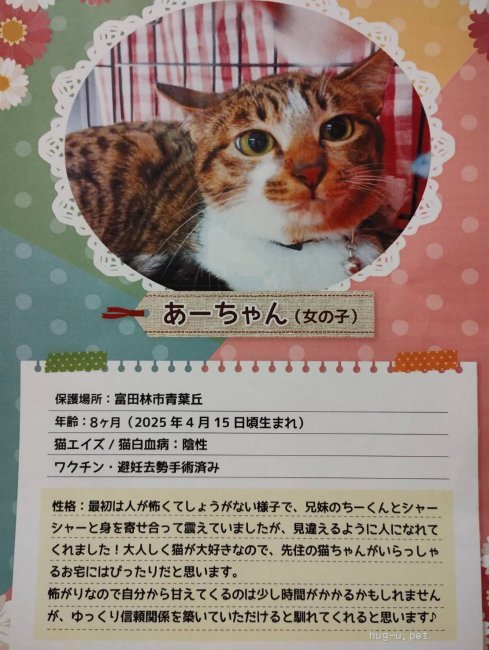 あーちゃん（女の子）
保護場所：富田林市青葉丘
年齢：8ヶ月（2025年4月15日頃生まれ）
猫エイズ/猫白血病：陰性
ワクチン・避妊去勢手術済み
性格：最初は人が怖くてしょうがない様子で、兄妹のちーくんとシャー
シャーと身を寄せ合って震えていましたが、見違えるように人になれて
くれました！大人しく猫が大好きなので、先住の猫ちゃんがいらっしゃ
るお宅にはぴったりだと思います。
怖がりなので自分から甘えてくるのは少し時間がかかるかもしれません
が、ゆっくり信頼関係を築いていただけると馴れてくれると思います♪
hug-u.pet